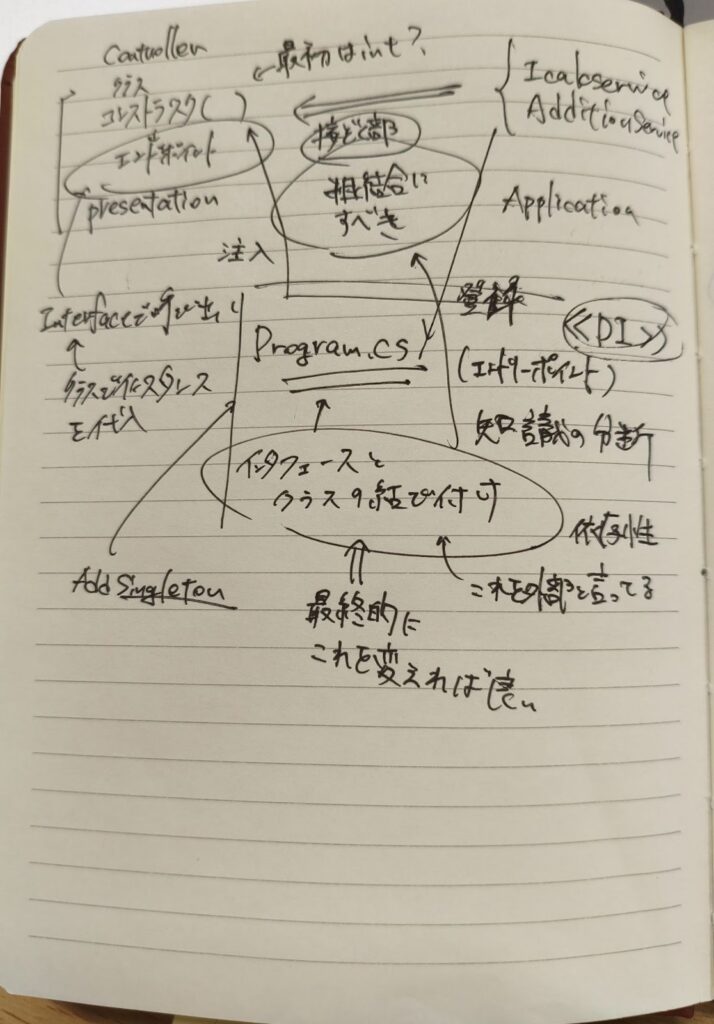 Controller
←最初はint?
クラス
コンストラスタ( )
エンドポイント
presentation
Icalcservice
AdditionService
接どく部
粗結合に
すべき
Application
注入
登録
Interfaceで呼び出し
Program.cs
《DI》
(エントリーポイント)
クラスでインスタンス
を注入
知識の分断
インタフェースと
クラスの結び付け
依存性
AddSingleton
これを外部と言ってる
最終的に
これを変えれば良い